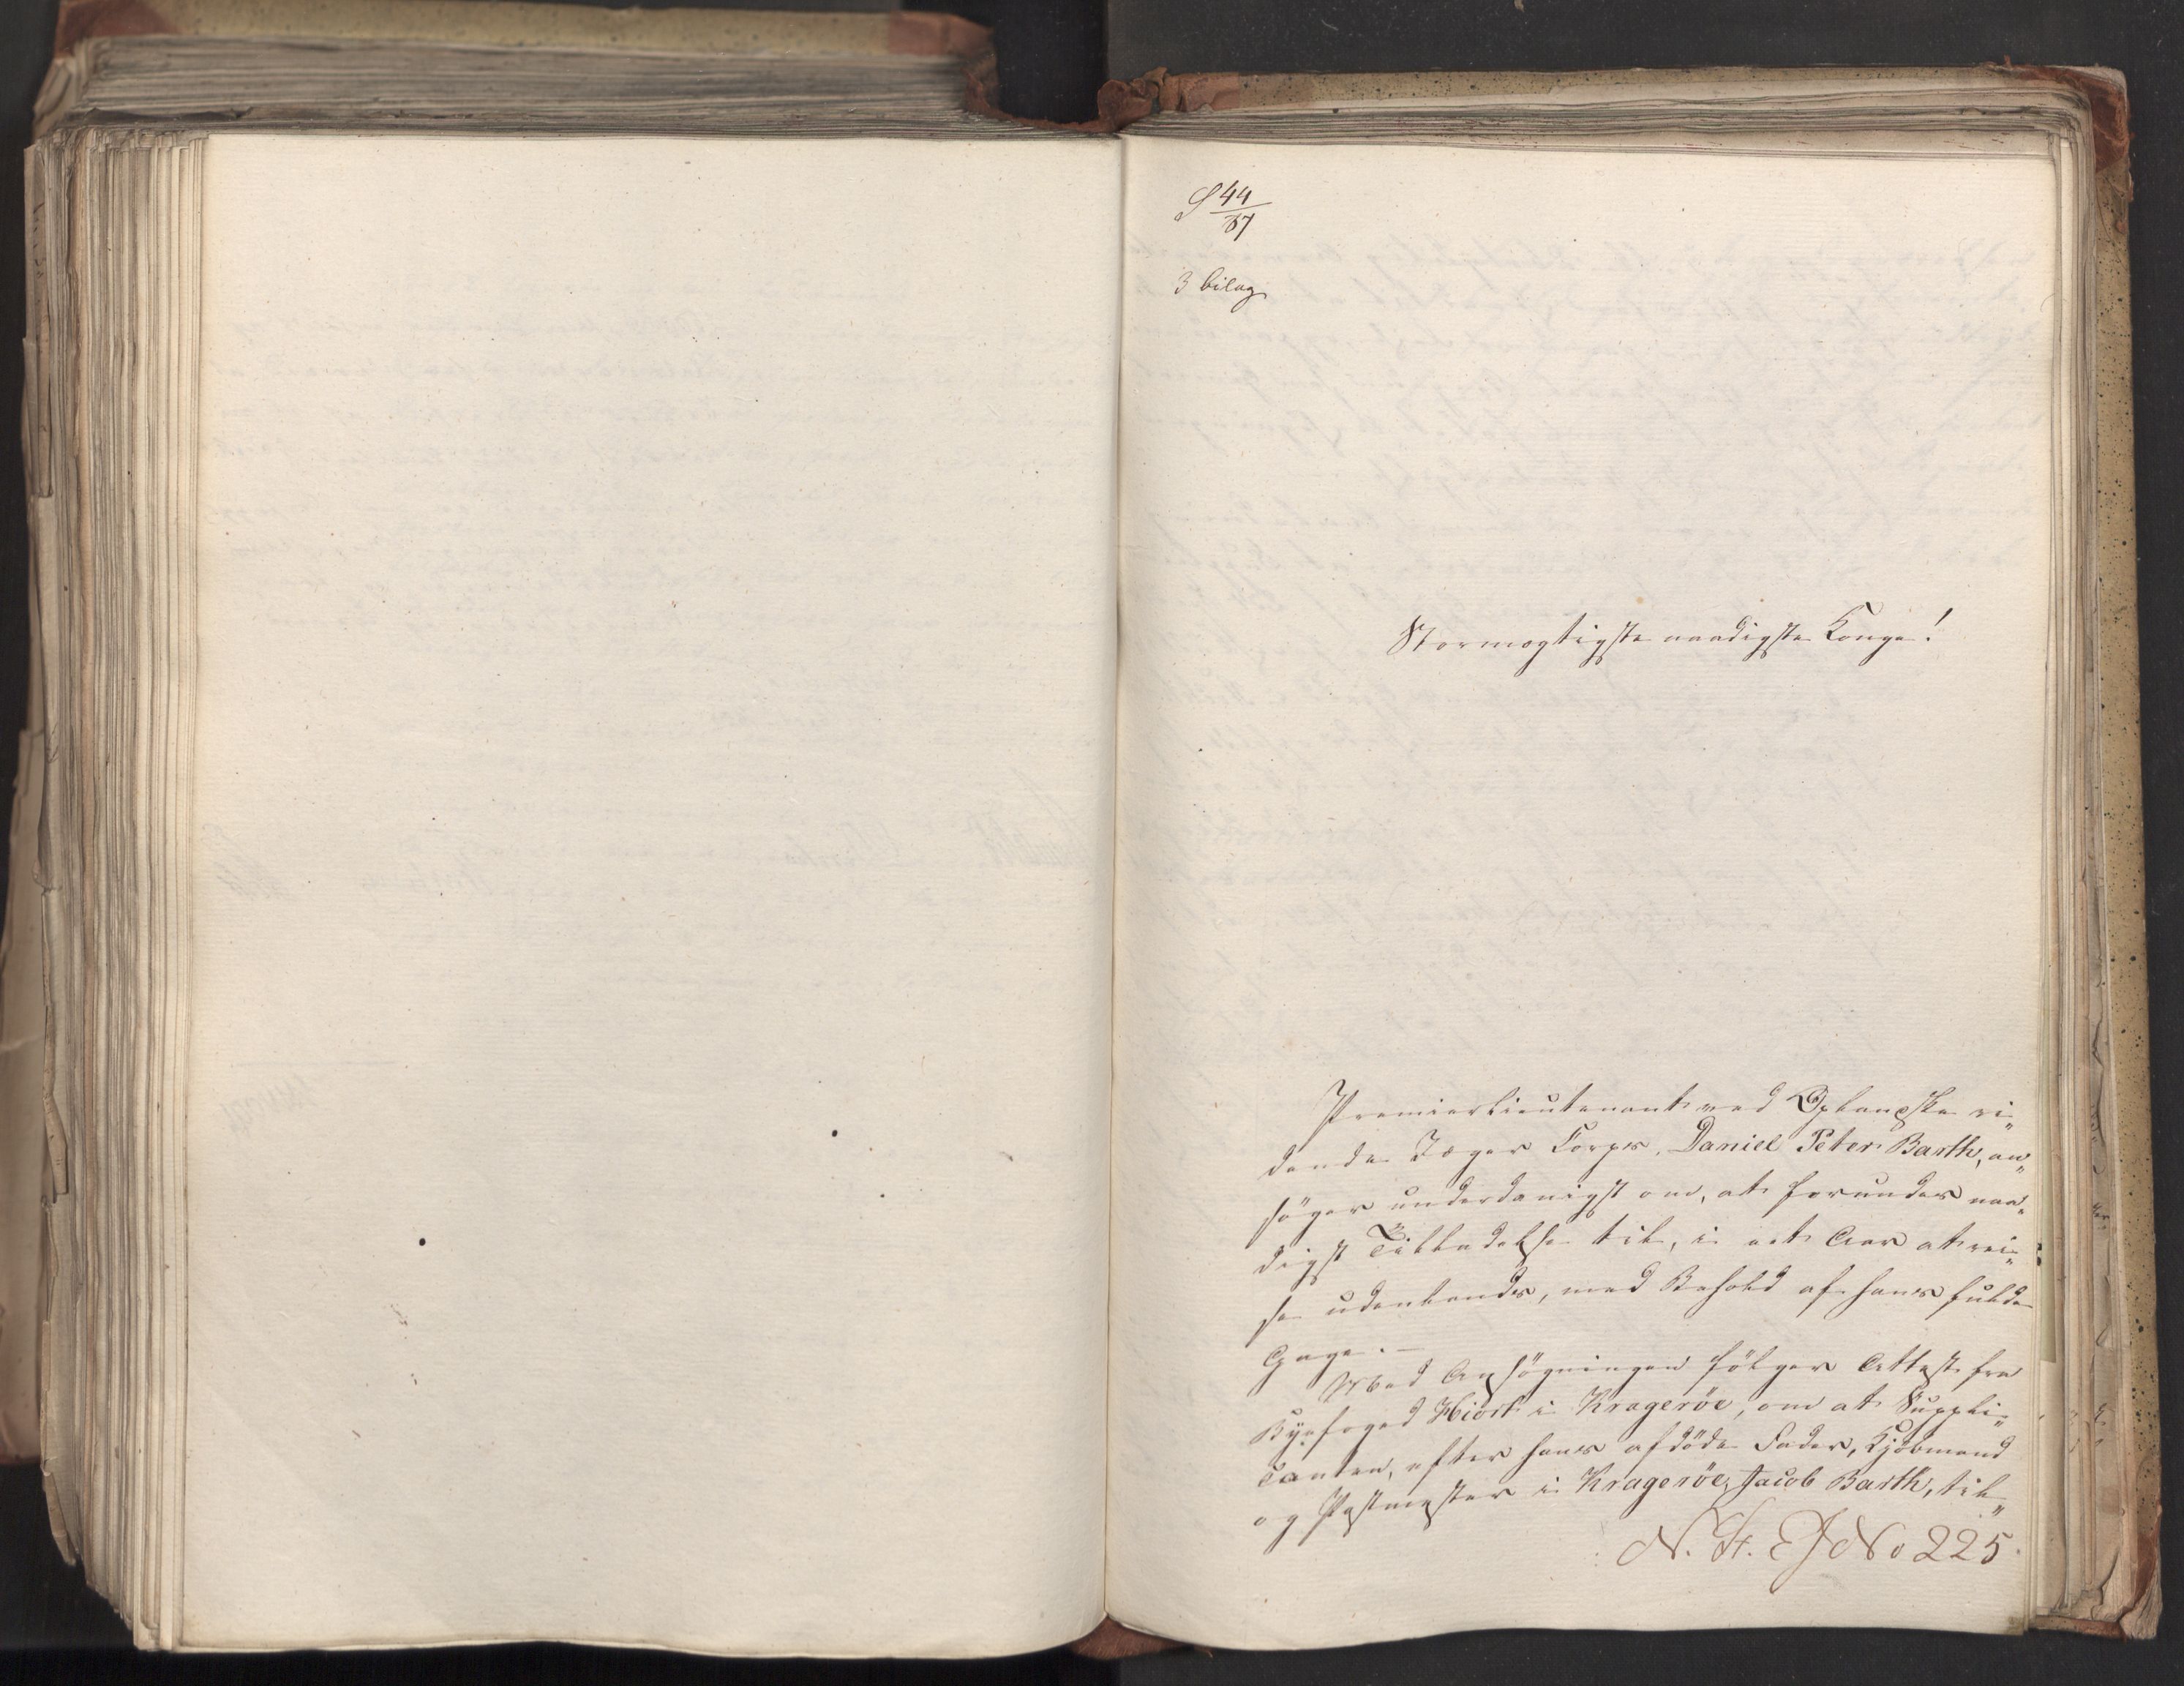 S 44/87
3 bilag
Stormægtigste naadigste Konge!
Premierlieutenant ved Oplandske ri„
dende Jæger Corps, Daniel Peter Barth, an„
søger underdanigst om, at forundes naa„
digst Tilladelse til, i eet Aar at rei„
se udenlands, med Behold af hans fulde
Gage. —
Med Ansøgningen følger Attest fra
Byefoged Hiort i Kragerøe, om at Suppli„
canten, efter hans afdøde Fader, Kjøbmand
og Postmester i Kragerøe, Jacob Barth, til„
No 225